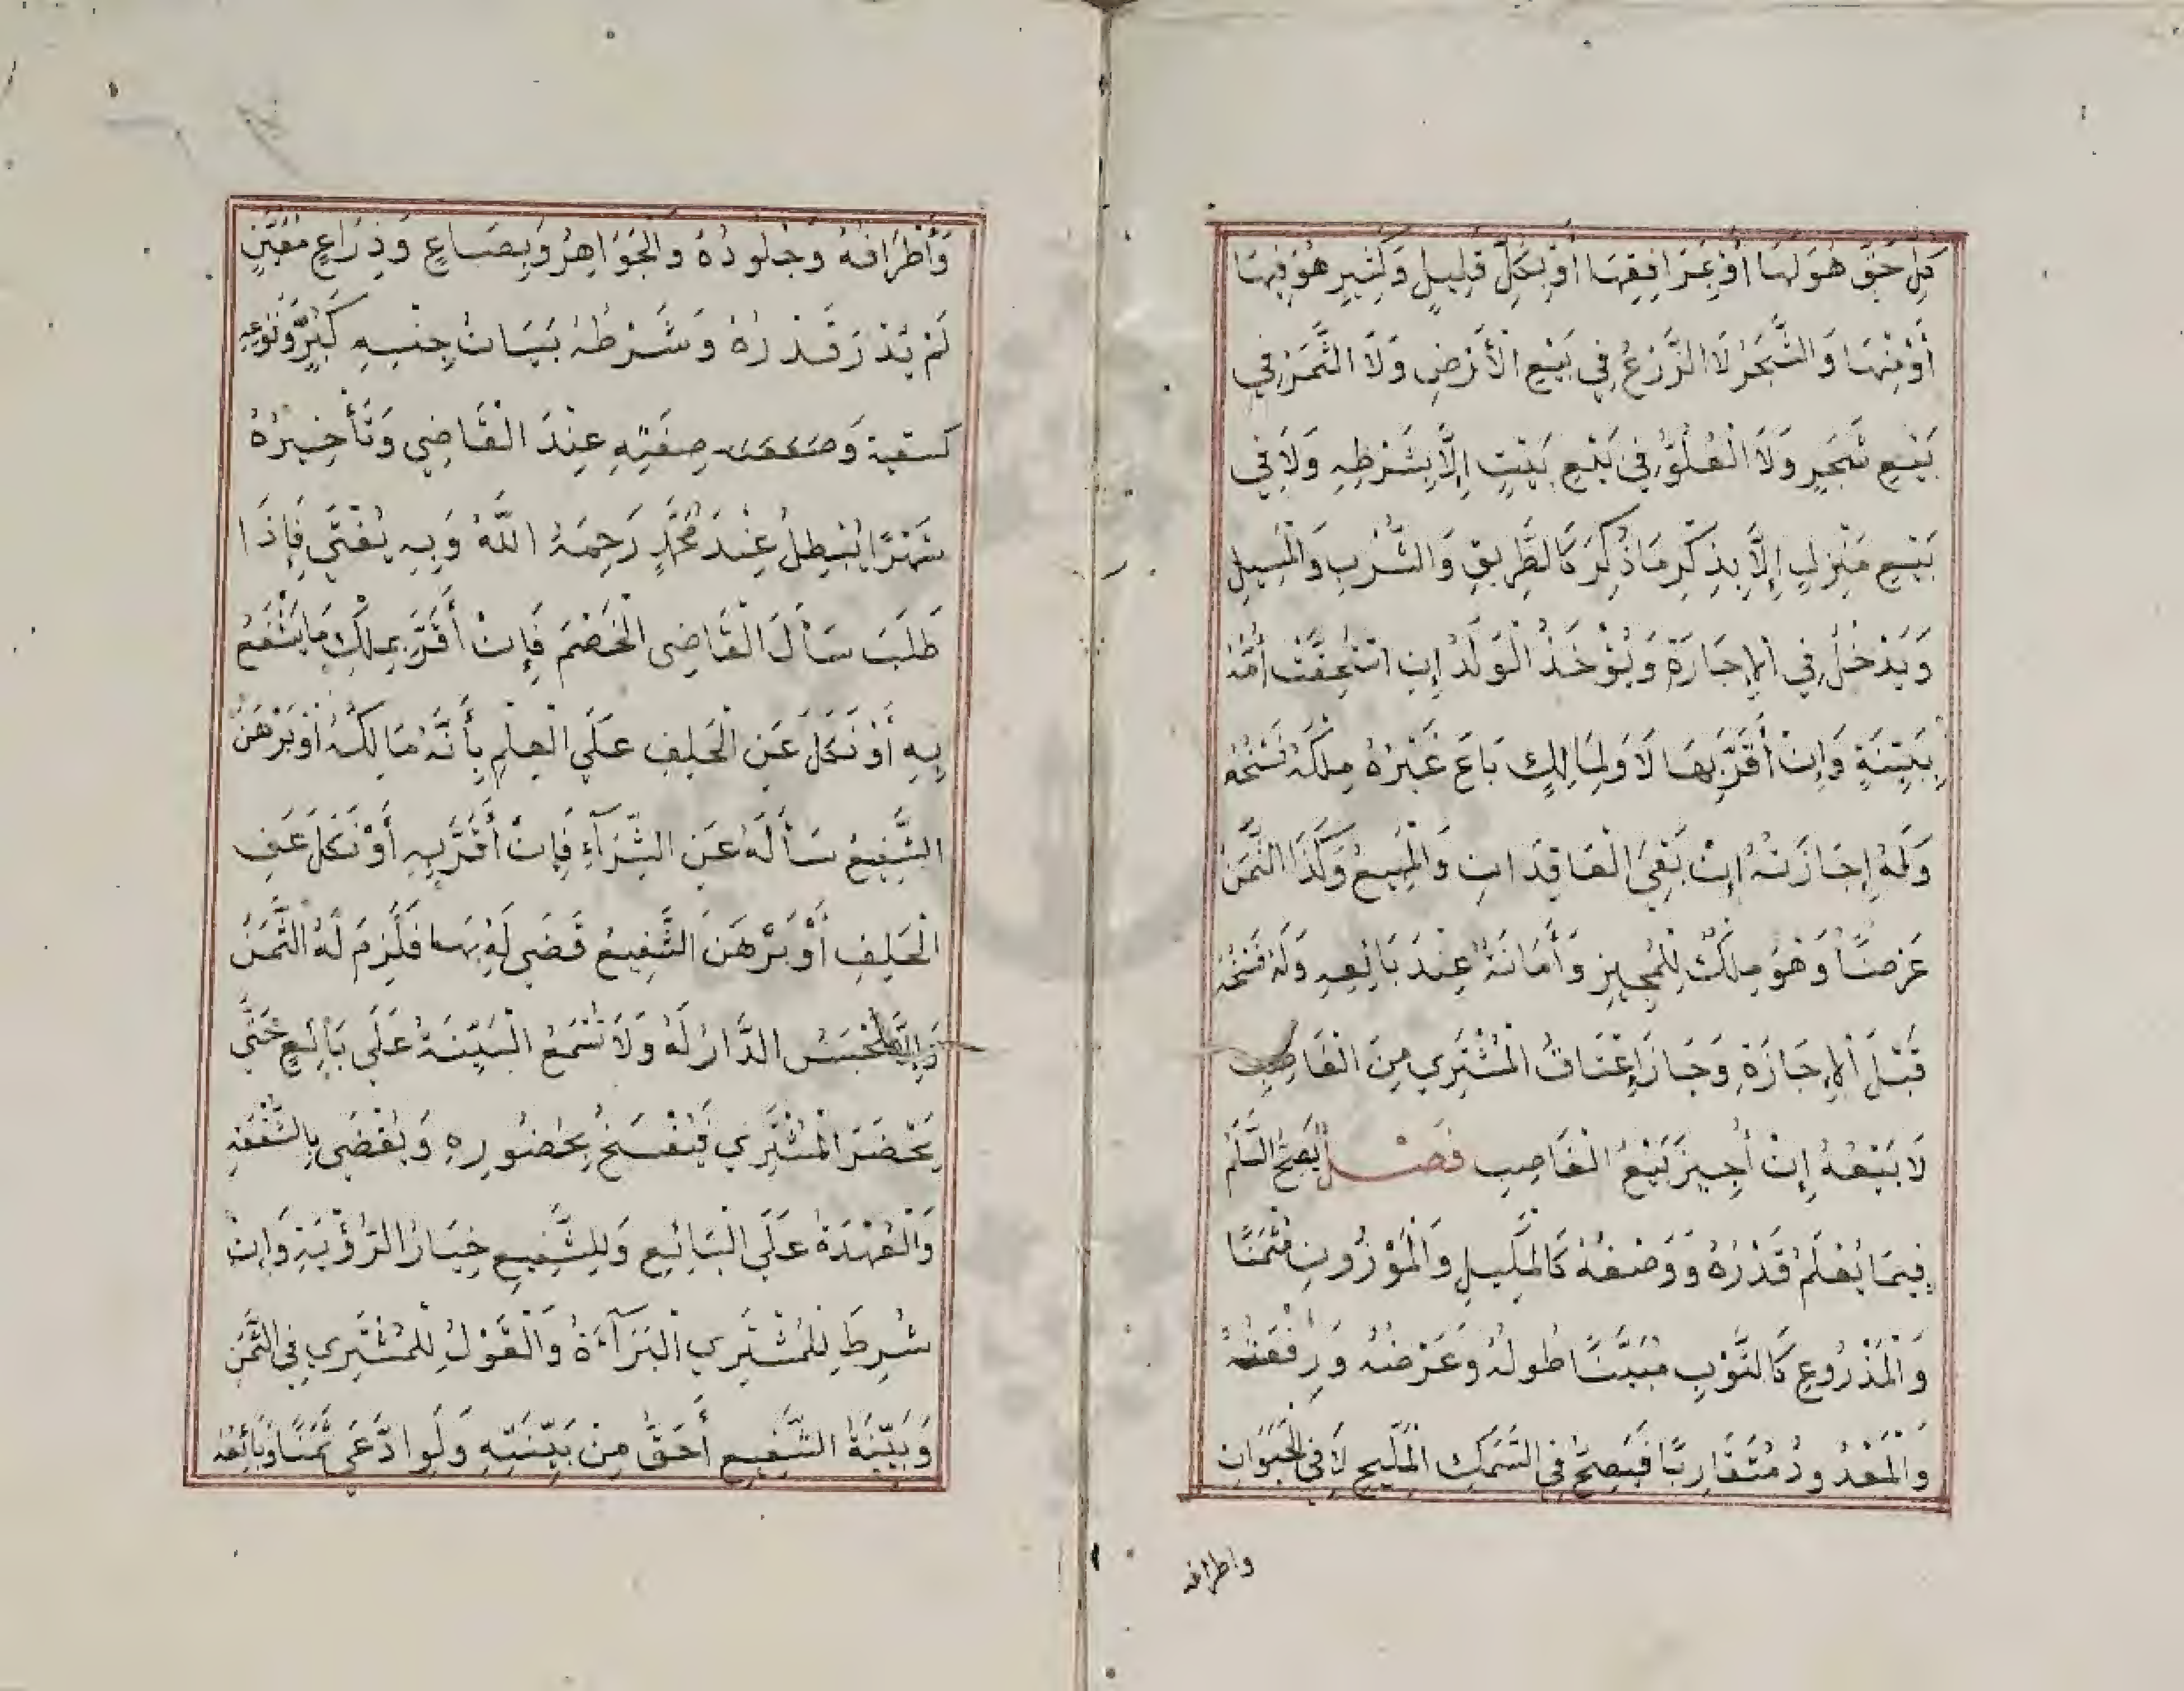 كُلِّ حَقٍّ هُوَ لَهَا أَوْ بِمَرَافِقِهَا أَوْ بِكُلِّ قَلِيلٍ وَكَثِيرٍ هُوَ فِيهَا
أَوْ مِنْهَا وَالشَّجَرُ لَا الزَّرْعُ فِي بَيْعِ الْأَرْضِ وَلَا الثَّمَرُ فِي
بَيْعِ شَجَرٍ وَلَا الْعُلُوُّ فِي بَيْعِ بَيْتٍ إِلَّا بِشَرْطِهِ وَلَا فِي
بَيْعِ مَنْزِلٍ إِلَّا بِذِكْرِ مَا ذُكِرَ كَالطَّرِيقِ وَالشُّرْبِ وَالْمَسِيلِ
وَيَدْخُلُ فِي الْإِجَارَةِ وَيُؤْخَذُ الْوَلَدُ إِنِ اسْتُحِقَّتْ أُمُّهُ
بِبَيِّنَةٍ وَإِنْ أَقَرَّ بِهَا لَا وَلِمَالِكٍ بَاعَ غَيْرُهُ مِلْكَهُ فَسْخُهُ
وَلَهُ إِجَازَتُهُ إِنْ بَقِيَ الْعَاقِدَانِ وَالْمَبِيعُ وَكَذَا الثَّمَنُ
عَرْضًا وَهُوَ مِلْكٌ لِلْمُجِيزِ وَأَمَانَةٌ عِنْدَ بَائِعِهِ وَلَهُ فَسْخُهُ
قَبْلَ الْإِجَازَةِ وَجَازَ إِعْتَاقُ الْمُشْتَرِي مِنَ الْغَاصِبِ
لَا بَيْعُهُ إِنْ أُجِيزَ بَيْعُ الْغَاصِبِ فَصْلٌ يَصِحُّ السَّلَمُ
فِيمَا يُعْلَمُ قَدْرُهُ وَوَصْفُهُ كَالْمَكِيلِ وَالْمَوْزُونِ مُثْمَنًا
وَالْمَذْرُوعِ كَالثَّوْبِ مُبَيَّنًا طُولُهُ وَعَرْضُهُ وَرِقْعَتُهُ
وَالْمَعْدُودُ مُتَقَارِبًا فَيَصِحُّ فِي السَّمَكِ الْمَلِيحِ لَا فِي الْحَيَوَانِ
واطرافه
وَأَطْرَافُهُ وَجُلُودُهُ وَالْجَوَاهِرُ وَبِصَاعٍ وَذِرَاعٍ مُعَيَّنٍ
لَمْ يُدْرَ قَدْرُهُ وَشَرْطُهُ بَيَانُ جِنْسِهِ كَبُرٍّ وَنَوْعِهِ
كسقية وَ صِفَتِهِ عِنْدَ الْقَاضِي وَتَأْخِيرُهُ
شَهْرًا يُبْطِلُ عِنْدَ مُحَمَّدٍ رَحِمَهُ اللَّهُ وَبِهِ يُفْتَى فَإِذَا
طَلَبَ سَأَلَ الْقَاضِي الْخَصْمَ فَإِنْ أَقَرَّ بِمِلْكِ مَا يَشْفَعُ
بِهِ أَوْ نَكَلَ عَنِ الْحَلِفِ عَلَى الْعِلْمِ بِأَنَّهُ مَالِكُهُ أَوْ بَرْهَنَ
الشَّفِيعُ سَأَلَهُ عَنِ الشِّرَاءِ فَإِنْ أَقَرَّ بِهِ أَوْ نَكَلَ عَنِ
الْحَلِفِ أَوْ بَرْهَنَ الشَّفِيعُ قَضَى لَهُ بِهَا فَلَزِمَ لَهُ الثَّمَنُ
تُحْبَسُ الدَّارُ لَهُ وَلَا تُسْمَعُ الْبَيِّنَةُ عَلَى بَائِعٍ حَتَّى
يَحْضُرَ الْمُشْتَرِي فَيُفْسَخُ بِحُضُورِهِ وَيُقْضَى بِالشُّفْعَةِ
وَالْعُهْدَةُ عَلَى الْبَائِعِ وَلِلشَّفِيعِ خِيَارُ الرُّؤْيَةِ وَإِنْ
شُرِطَ لِلْمُشْتَرِي الْبَرَاءَةُ وَالْقَوْلُ لِلْمُشْتَرِي فِي الثَّمَنِ
وَبَيِّنَةُ الشَّفِيعِ أَحَقُّ مِنْ بَيِّنَتِهِ وَلَوِ ادَّعَى ثَمَنًا وَبَائِعُهُ